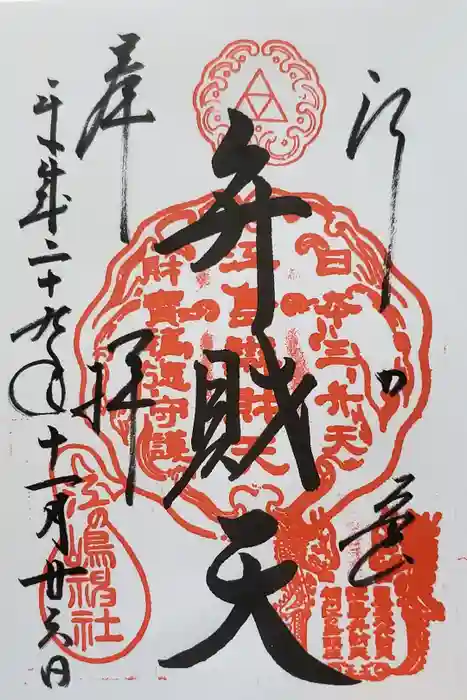 江の島
弁財天
奉拝
平成二十九年十一月廿六日
日本三弁天
江島弁財天
財宝福徳守護
江の嶋神社